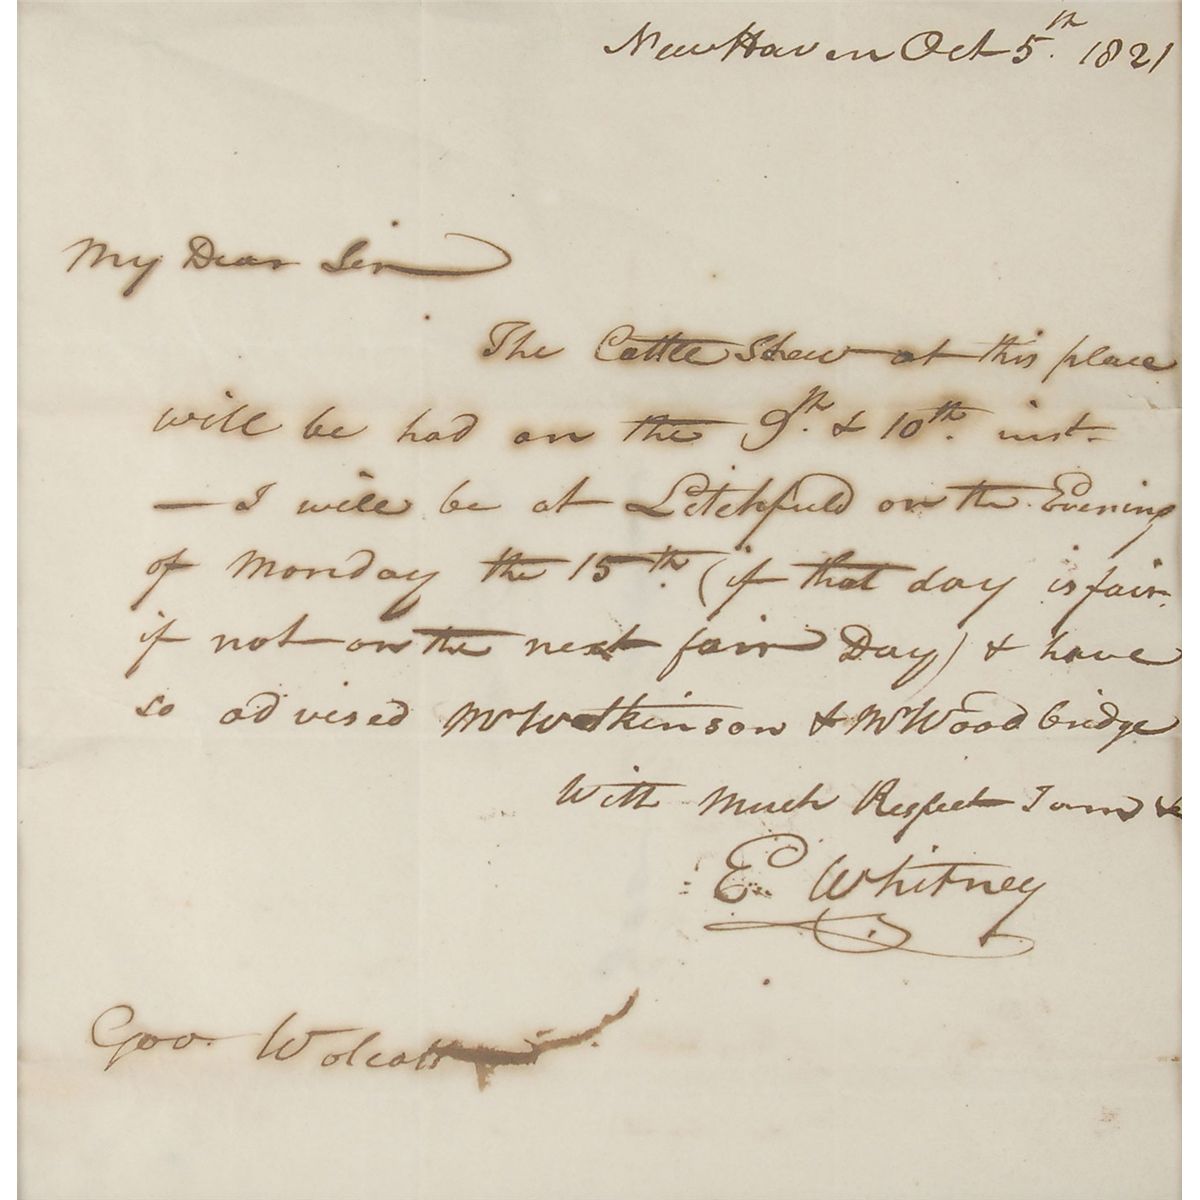 New Haven Oct 5th. 1821
My Dear Sir
The Cattle Show at this place
will be had on the 9th. & 10th. inst-
— I will be at Litchfield on the Evening
of Monday the 15th. (if that day is fair-
if not on the next fair Day) & have
so advised Mr Watkinson & Mr Woodbridge
With Much Respect I am &
E. Whitney
Gov. Wolcott